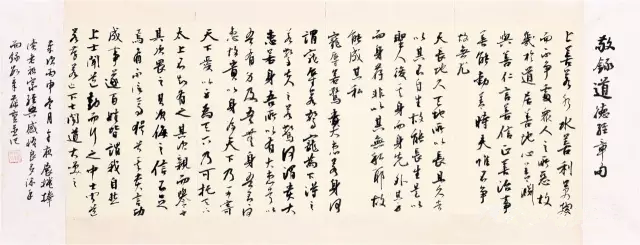 敬錄道德經章句
上善若水水善利萬物
而不爭處眾人之所惡故
幾於道居善地心善淵
與善仁言善信正善治事
善能動善時夫唯不爭
故無尤
天長地久天地所以長且久者
以其不自生故能長生是以
聖人後其身而身先外其身
而身存非以其無私耶故
能成其私
寵辱若驚貴大患若身何
謂寵辱若驚寵為下得之
若驚失之若驚何謂貴大
患若身吾所以有大患者以
吾有身及吾無身吾有何
患故貴以身為天下乃可寄
天下愛以身為天下乃可托天下
太上不知有之其次親而譽之
其次畏之其次侮之信不足
焉有不信焉猶兮其貴言功
成事遂百姓皆謂我自然
上士聞道勤而行之中士聞道
若存若亡下士聞道大笑之
歲次丙申冬月午夜